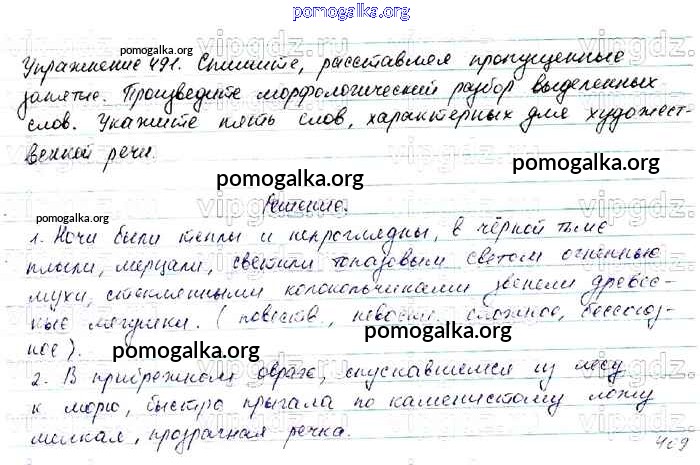 pomogalka.org
pomogalka.org
Упражнение 491. Спишите, расставляя пропущенные
запятые. Произведите морфологический разбор выделенных
слов. Укажите пять слов, характерных для художест-
венной речи.
pomogalka.org
pomogalka.org
Решение.
pomogalka.org
1. Ночи были теплы и непроглядны, в чёрной тьме
плыли, мерцали, светили топазовым светом огненные
мухи, стеклянными колокольчиками звенели древес-
ные лягушки. (повеств., невоскл., сложное, бессоюз-
pomogalka.org
ное).
pomogalka.org
2. В прибрежном овраге, спускавшемся из лесу
к морю, быстро прыгала по каменистому ложу
мелкая, прозрачная речка.
409
vipgdz.ru